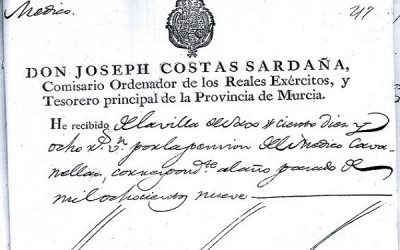 Medico.
DON JOSEPH COSTAS SARDAÑA,
Comisario Ordenador de los Reales Exércitos, y
Tesorero principal de la Provincia de Murcia.
He recibido de la villa de ciento diez y
ocho r.s v.n por la pension del Medico Cava-
nellas, correspond.te al año pasado de
mil ochocientos nueve